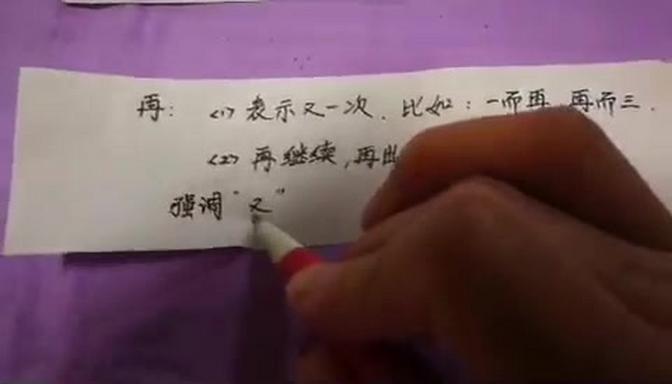 再：<1>表示又一次．比如：一而再，再而三．
<2>再继续，再出
强调“又”